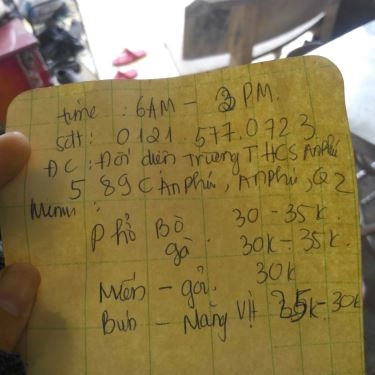 time : 6AM - 2PM.
sdt : 0121.577.0723
ĐC : Đối diện Trường THCS An Phú
589C An Phú, An Phú, Q2
Menu :
Phở Bò 30 - 35k.
gà. 30k - 35k.
Miến - gà. 30k
Bún - Măng Vịt 25k - 30k